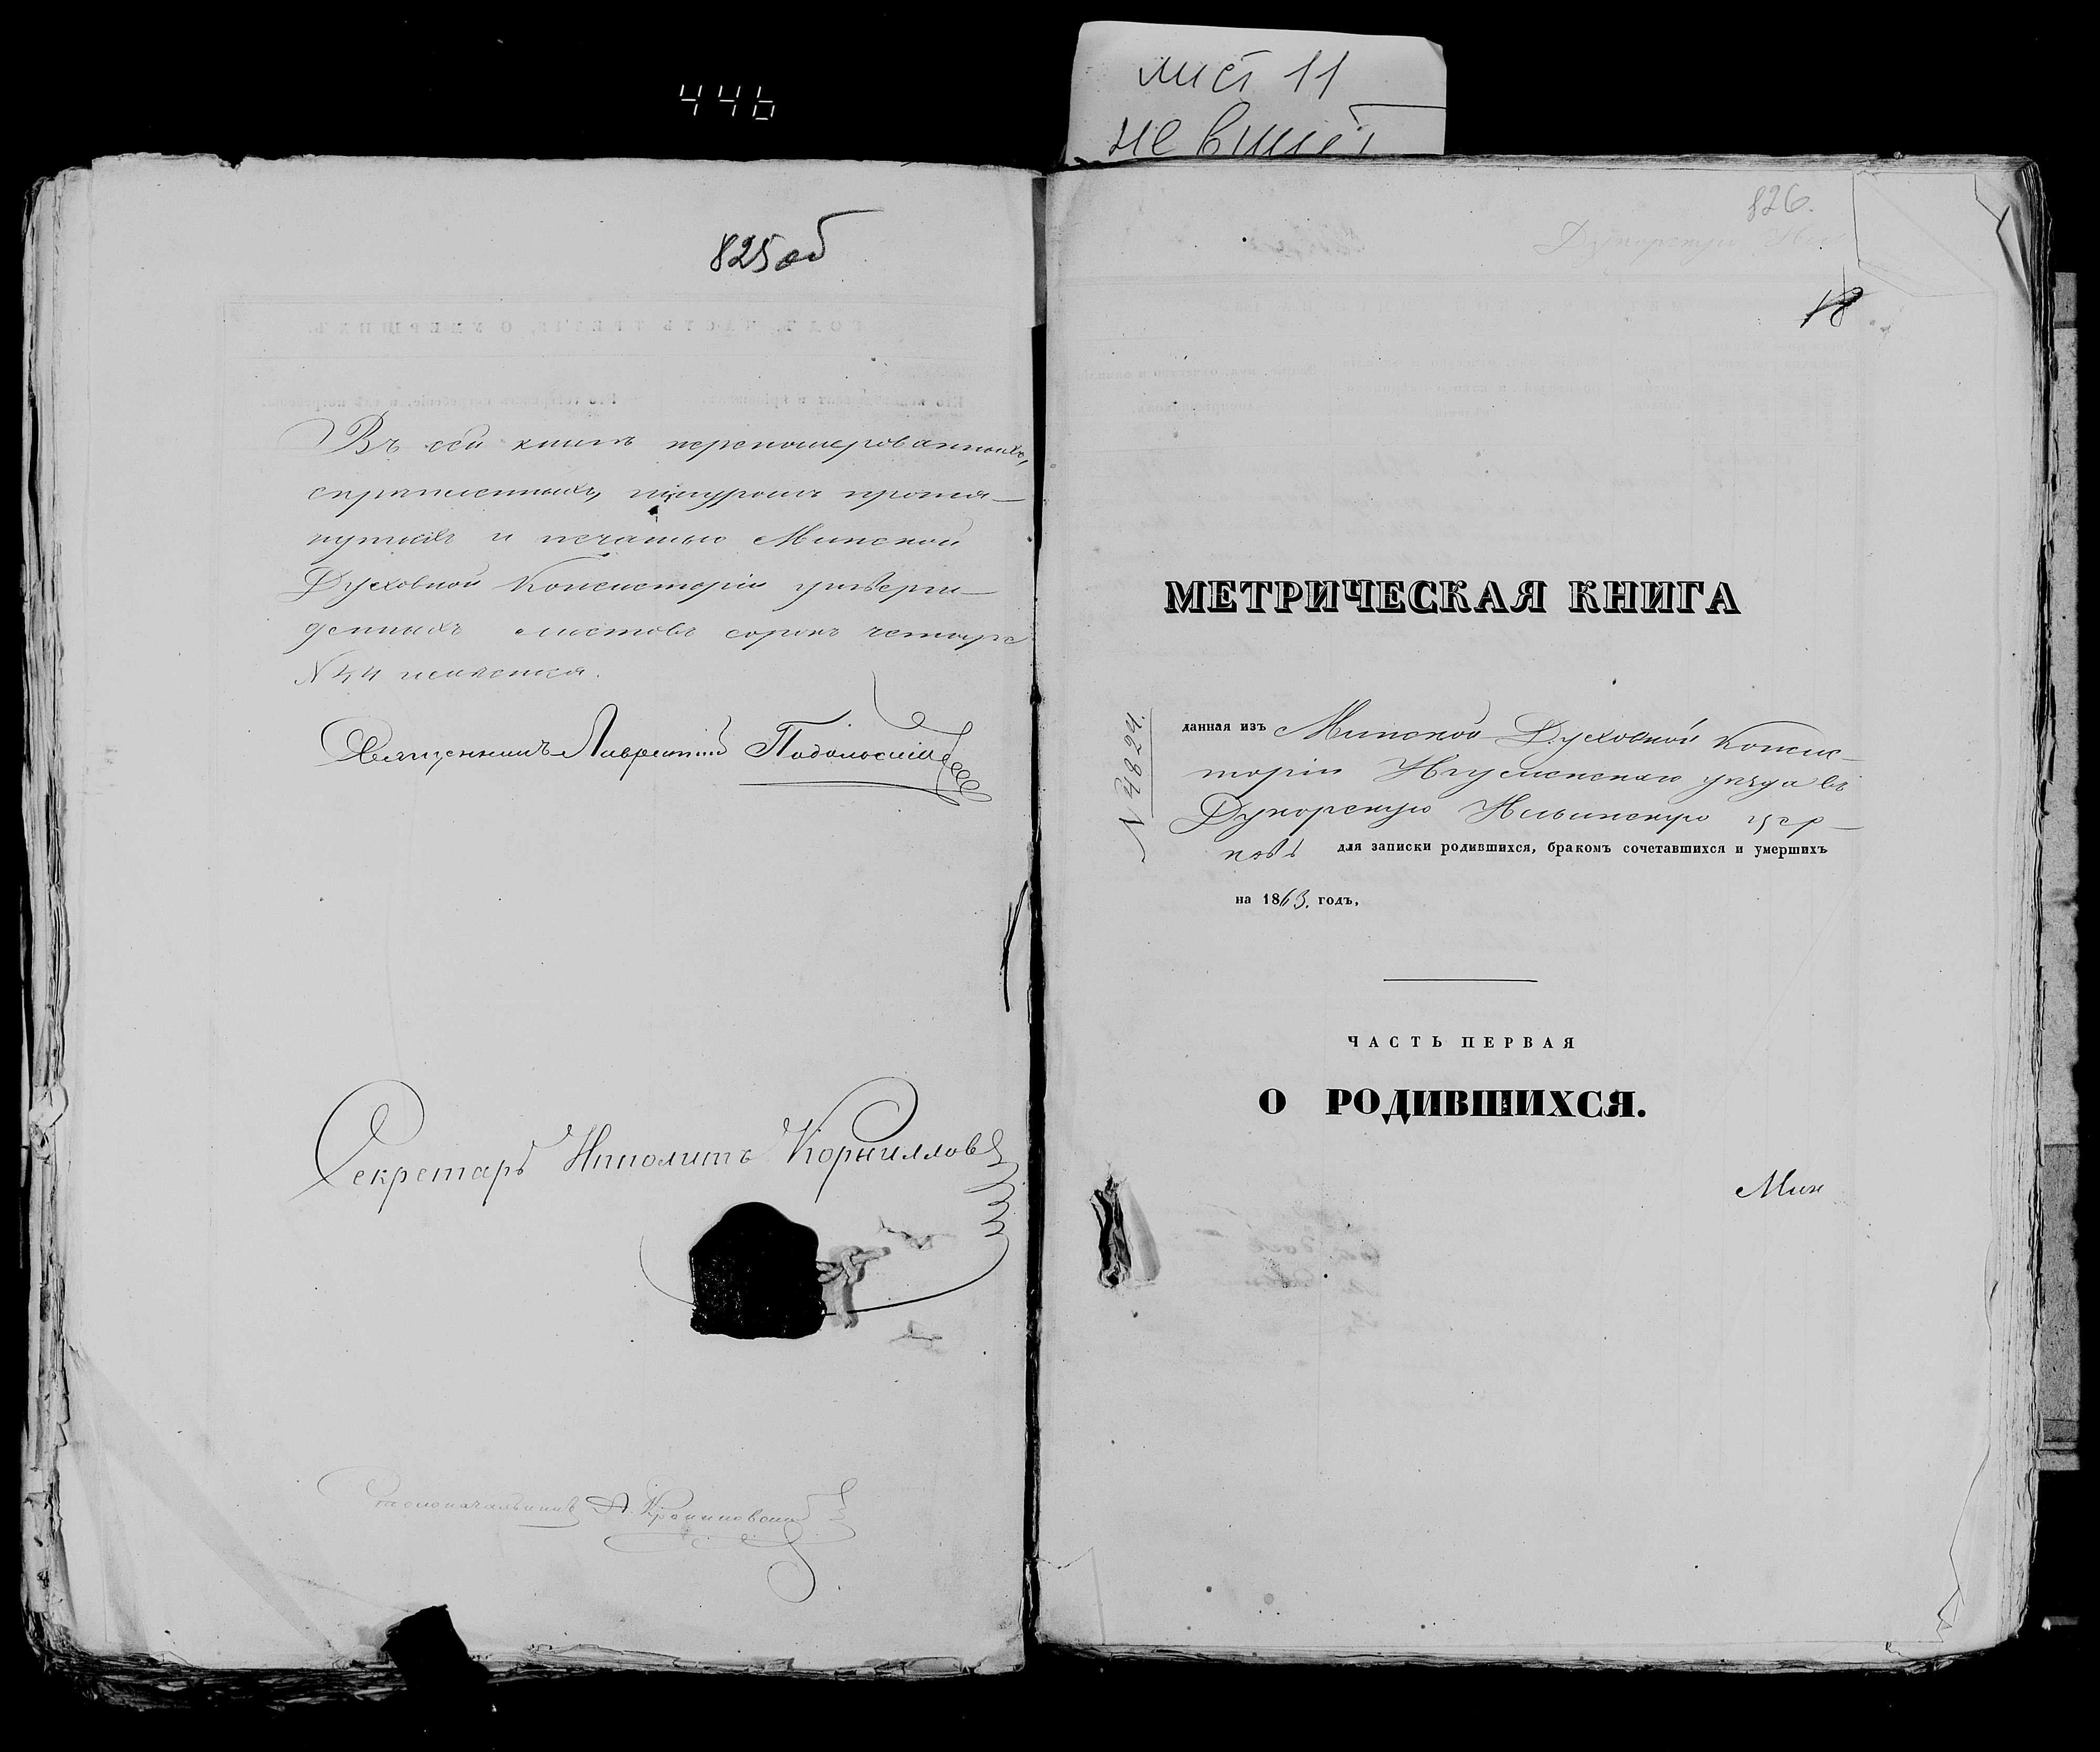 446
лист 11
не вшит
825 об
Въ сей книгѣ перенумерованныхъ,
скрѣпленныхъ, шнуромъ протя-
нутыхъ и печатью Минской
Духовной Консисторіи утвержд-
денныхъ листовъ сорокъ четыре
N 44 имѣется.
Священникъ Лаврентій Подольскій
Секретарь Иполитъ Корниловъ
Столоначальникъ А.
826.
Дукорскую
18
МЕТРИЧЕСКАЯ КНИГА
N 4824.
данная изъ Минской Духовной Консис-
торіи Игуменскаго уѣзда въ
Дукорскую Ильинскую цер-
ковь для записки родившихся, бракомъ сочетавшихся и умершихъ
на 1863. годъ,
ЧАСТЬ ПЕРВАЯ
О РОДИВШИХСЯ.
Мин